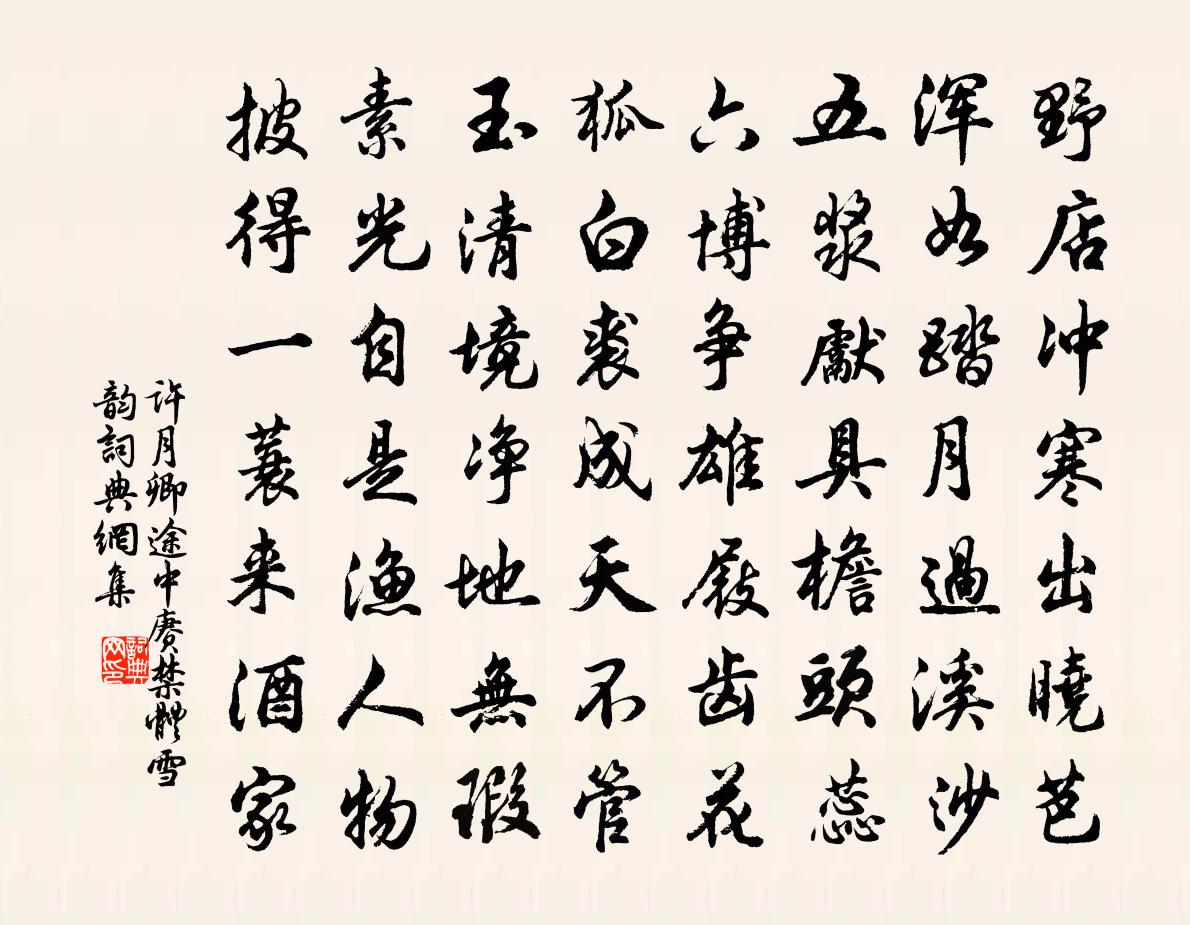 野店冲寒出曉芭
浑如踏月過溪沙
五漿獻具檐頭蕊
六博争雄屐齿花
狐白裘成天不管
玉清境净地無瑕
素光自是漁人物
披得一蓑来酒家
许月卿途中赓禁體雪
韵詞典網集
詞典网印